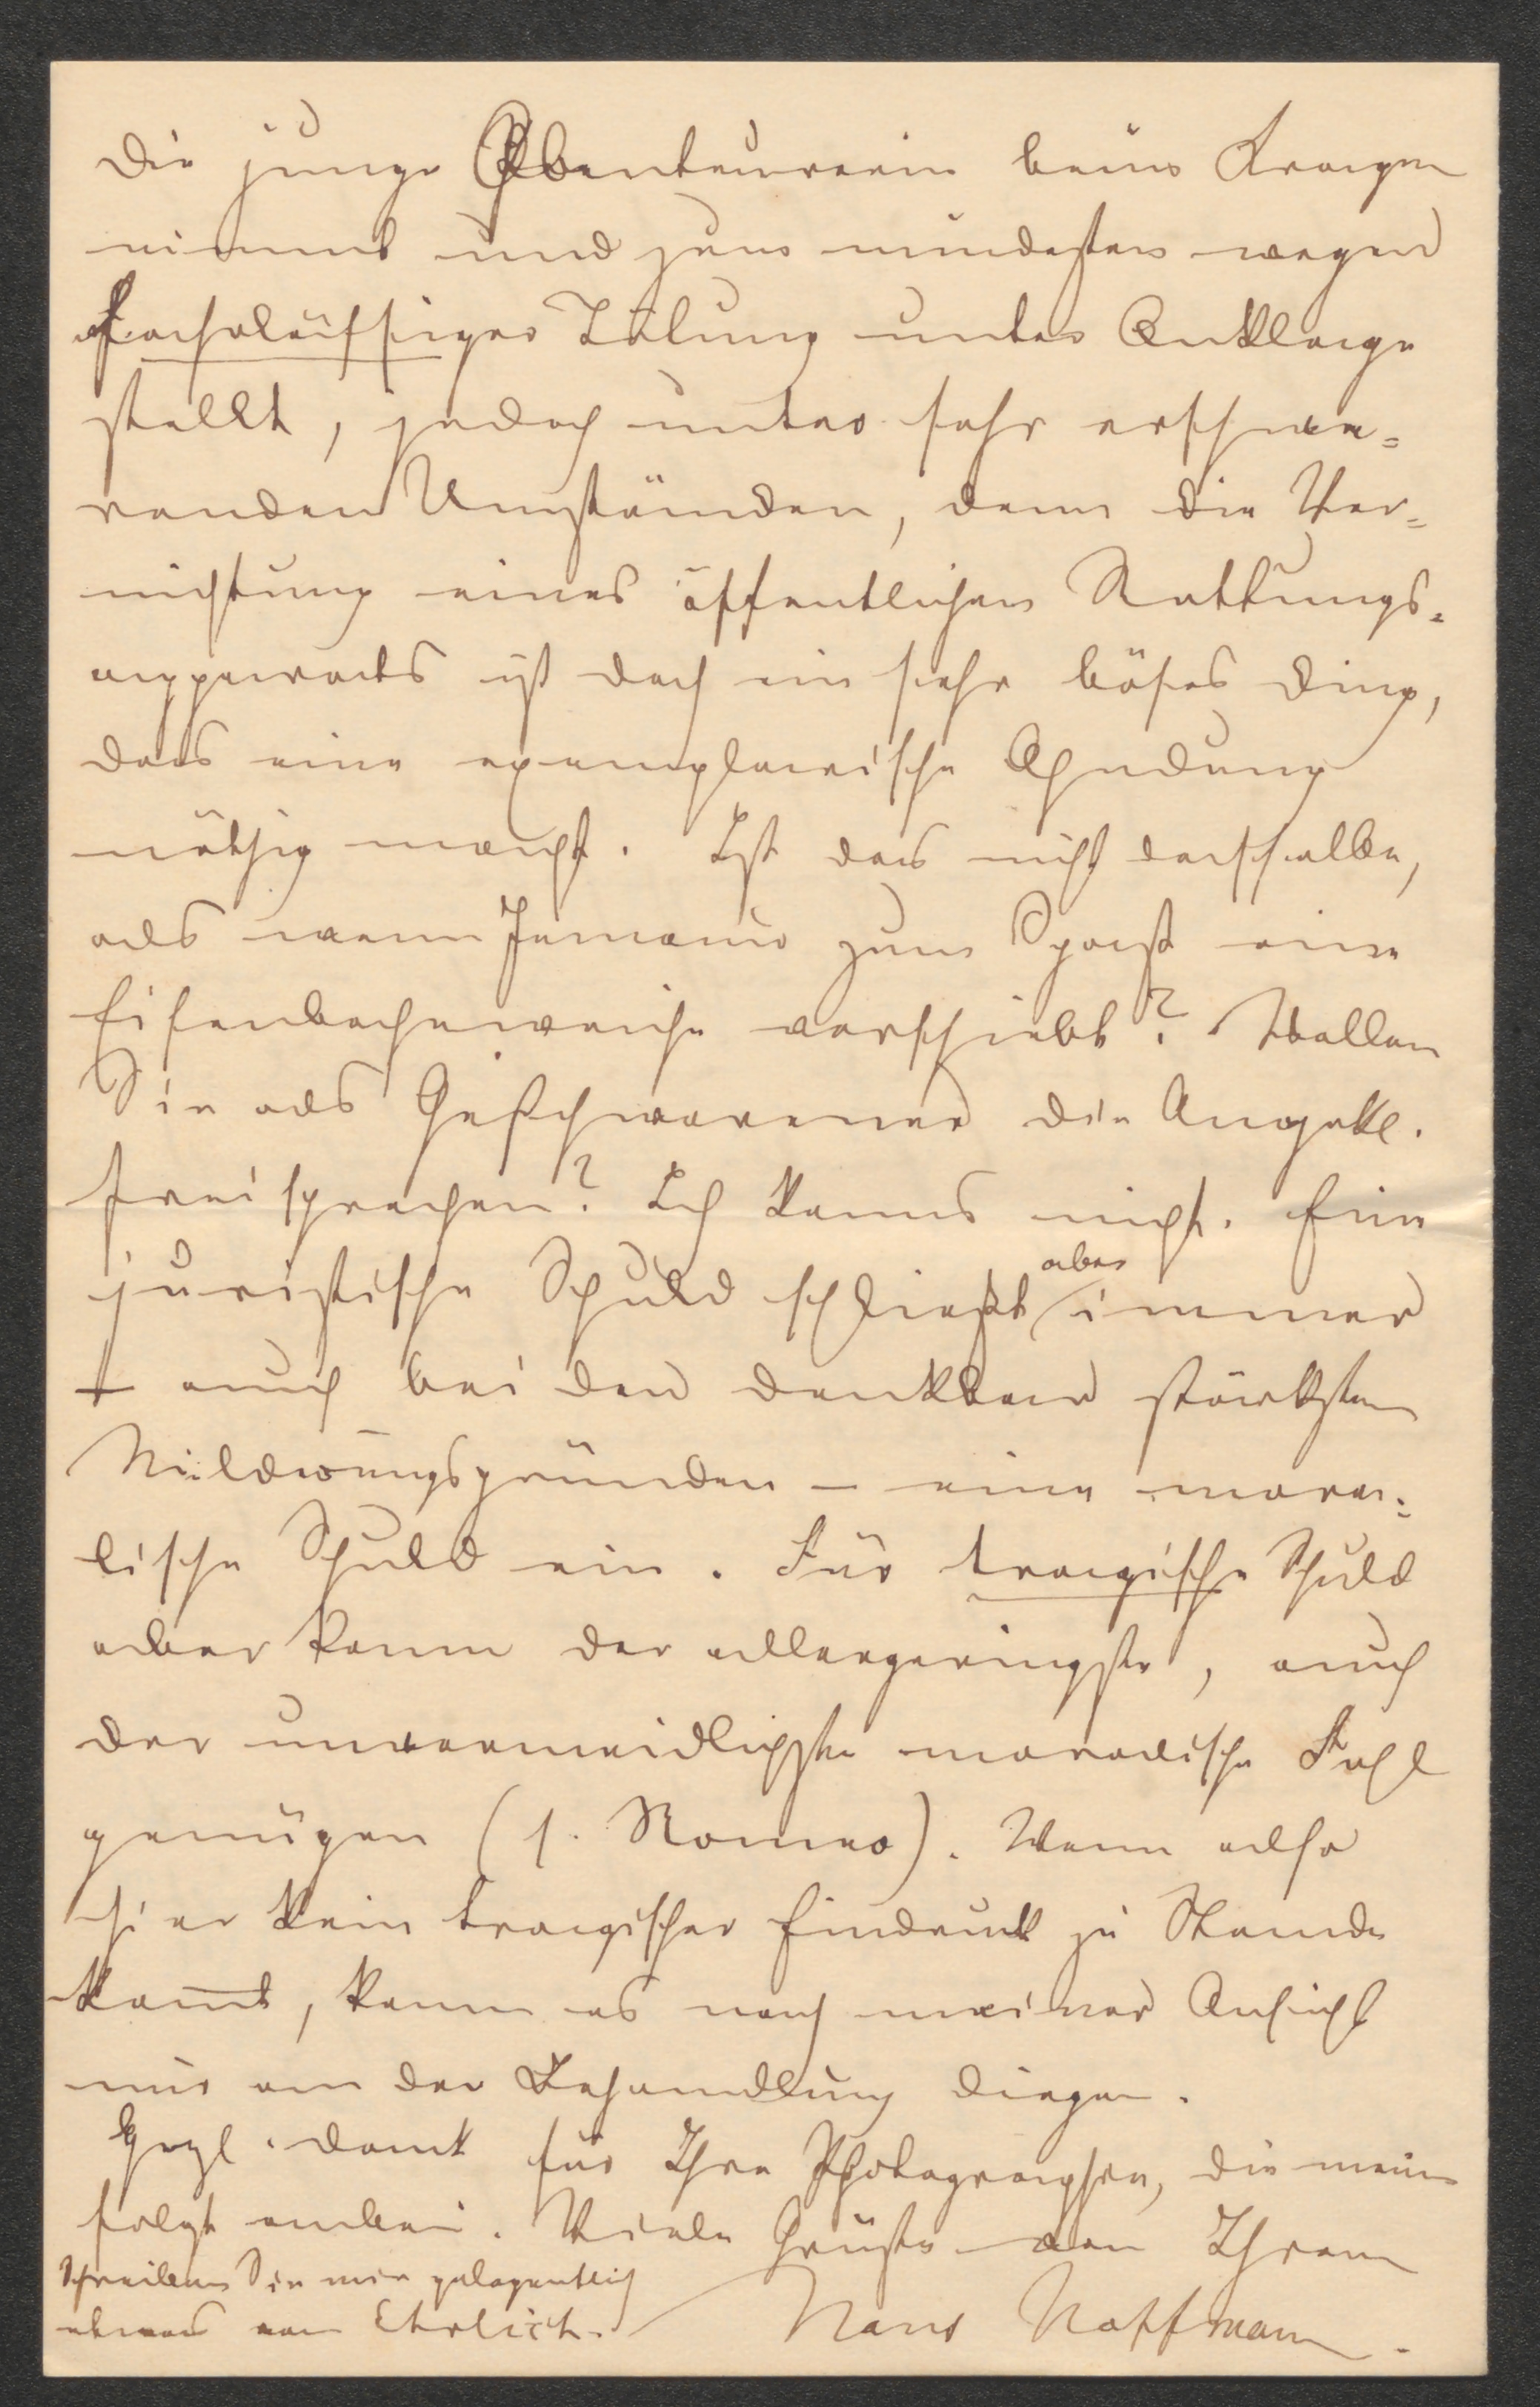 die junge Abenteurerin beim Kragen
nimmt und zum mindesten wegen
fahrlässiger Tötung unter Anklage
stellt, jedoch unter sehr erschwe-
renden Umständen, denn die Ver-
nichtung eines öffentlichen Rettungs-
apparats ist doch ein sehr böses Ding,
das eine exemplarische Ahndung
nöthig macht. Ist das nicht dasselbe,
als wenn Jemand zum Spaß eine
Eisenbahnweiche verschiebt? Wollen
Sie als Geschworener die Angekl.
freisprechen? Ich kanns nicht. Eine
juristische Schuld schließt aber immer
– auch bei den denkbar stärksten
Milderungsgründen – eine mora-
lische Schuld ein. Für tragische Schuld
aber kann der allergeringste, auch
der unvermeidlichste moralische Fehl
genügen (s. Romeo). Wenn also
hier kein tragischer Eindruck zu Stande
kommt, kann es nach meiner Ansicht
nur an der Behandlung liegen.
Hrzl. Dank für Ihre Photographie, die meine
folgt anbei. Viele Grüße von Ihrem
Schreiben Sie mir gelegentlich
etwas von Ehrlich.
Hans Hoffmann.